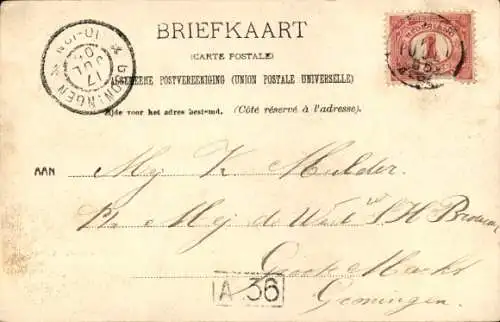 BRIEFKAART
(CARTE POSTALE)
ALGEMEENE POSTVEREENIGING (UNION POSTALE UNIVERSELLE)
Zijde voor het adres bestemd. (Côté réservé à l'adresse).
GRONINGEN
17 JUL
10-12N
1
AAN Mej K. Mulder.
Mej de S. H.
Groote Markt
Groningen.
A 36